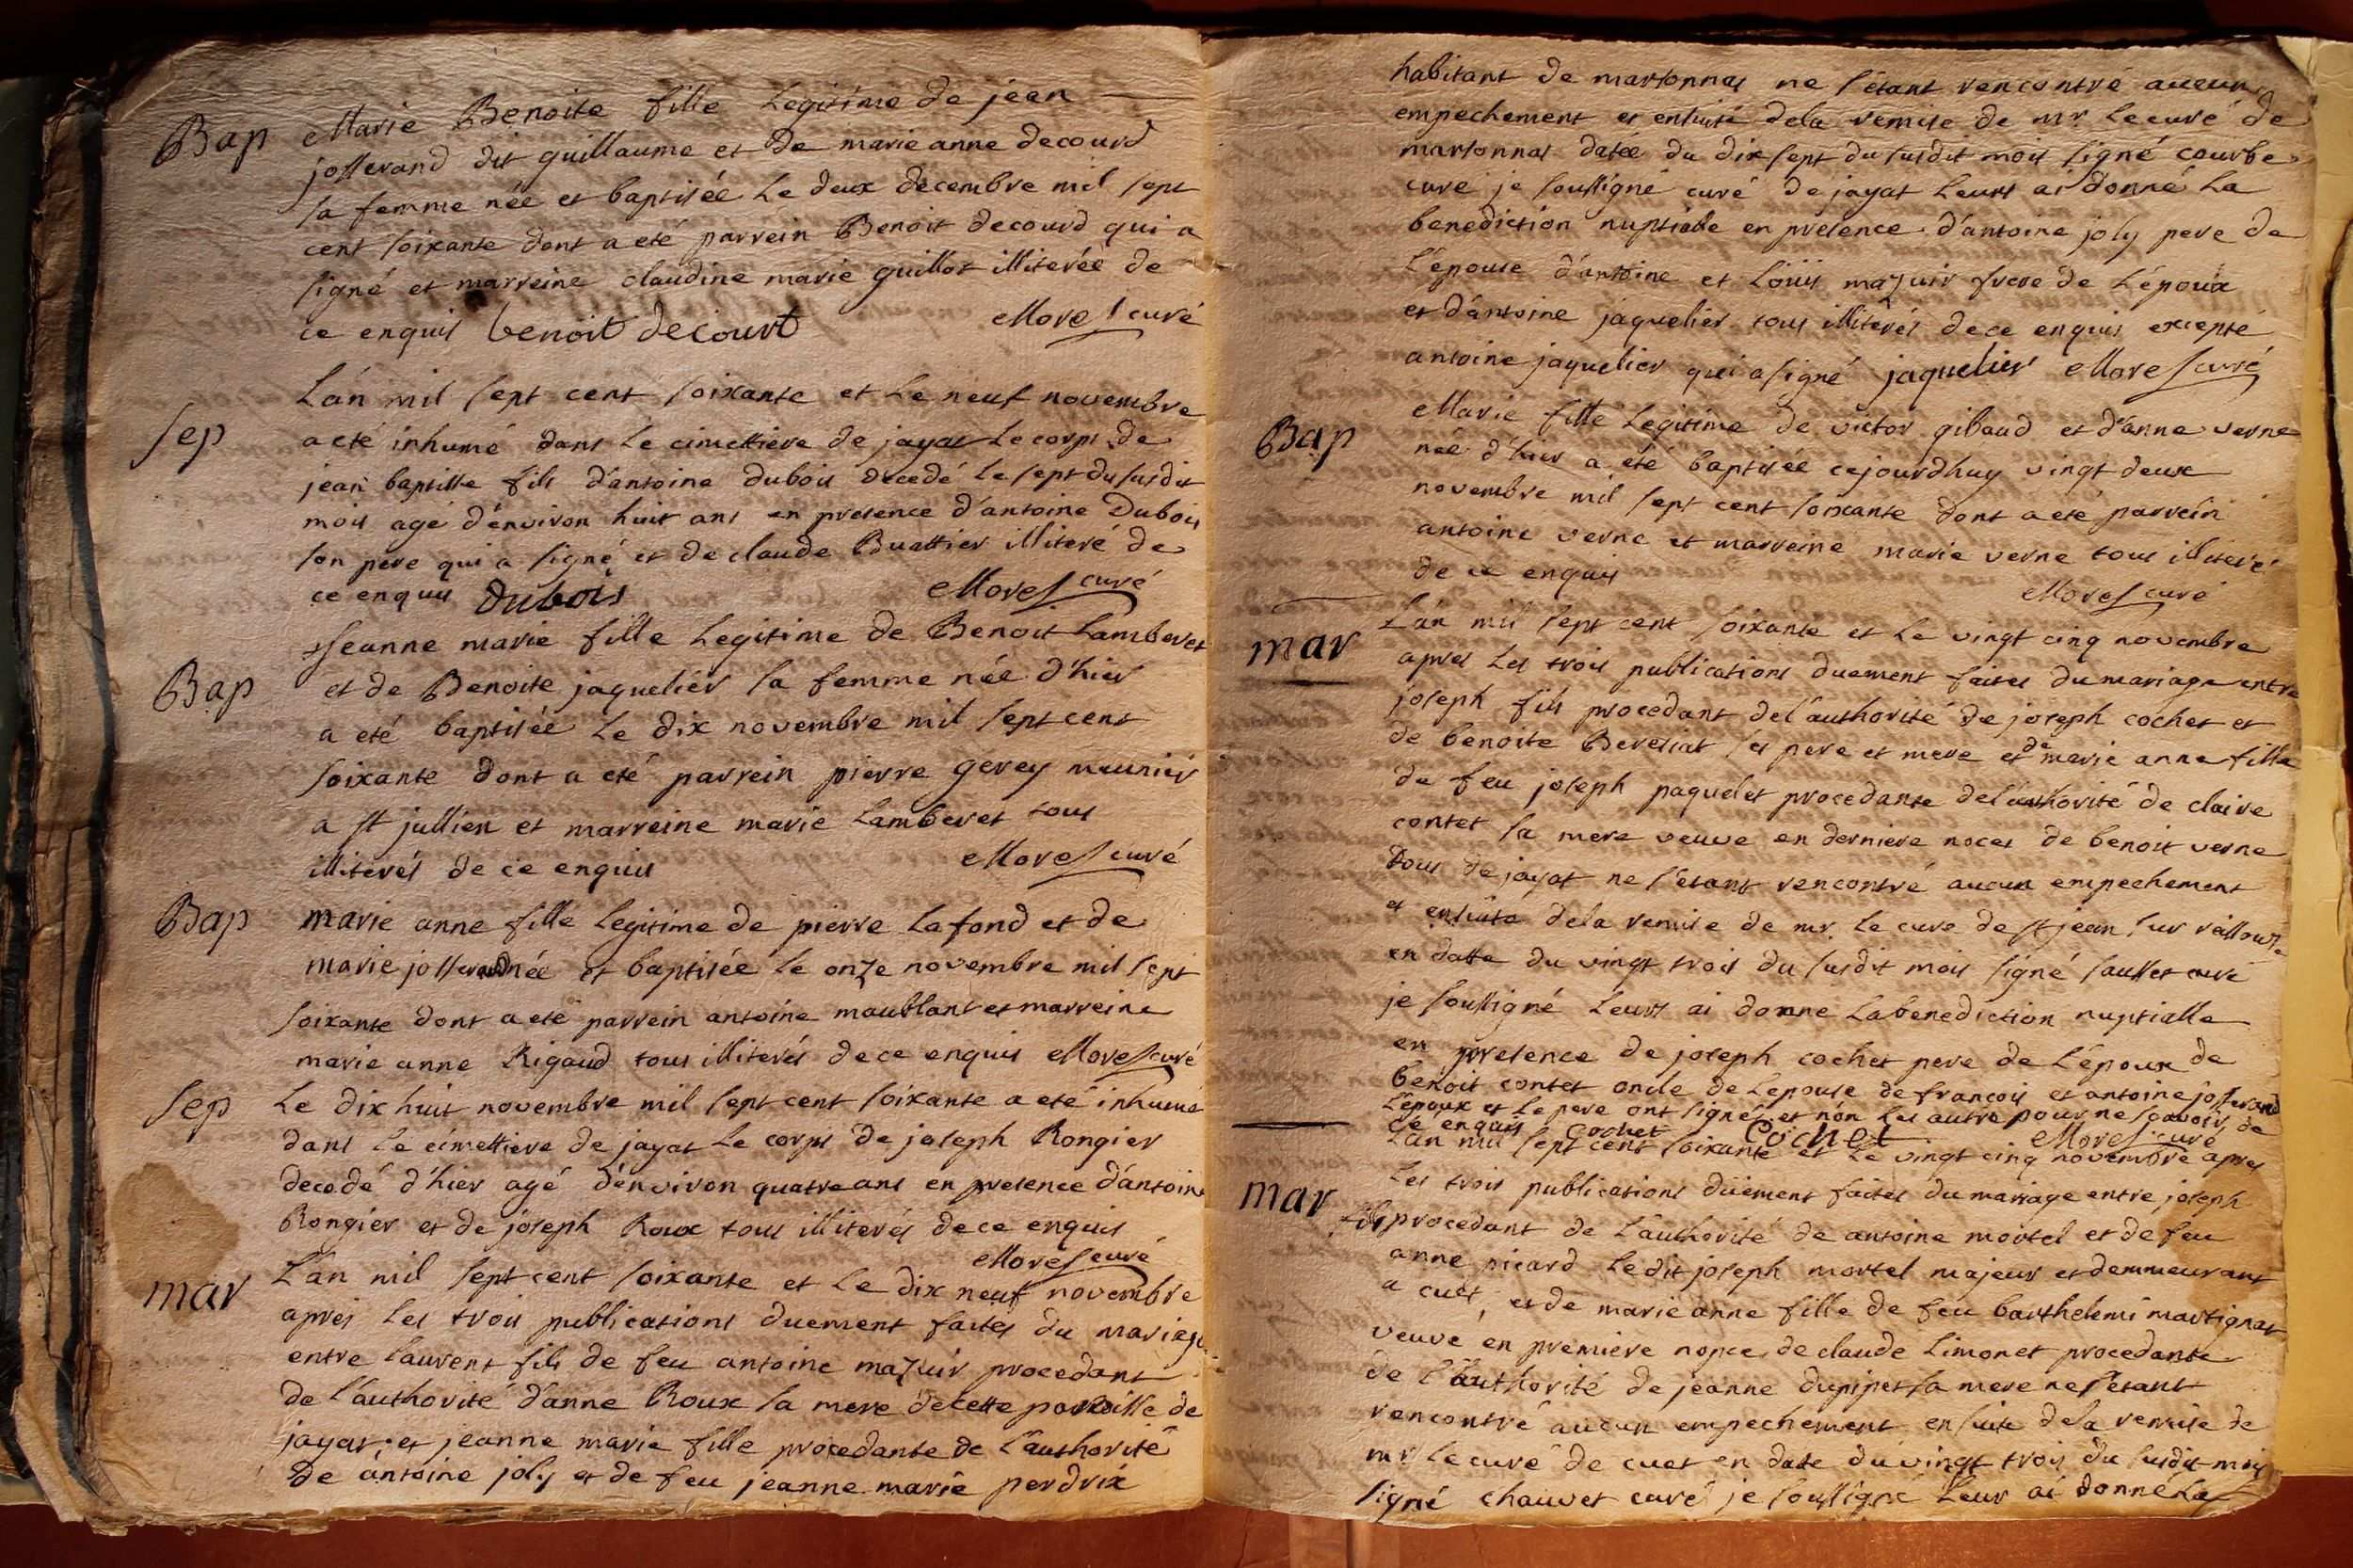 Bap
Marie Benoite fille Legitime de jean
josserand dit guillaume et de marie anne decourd
sa femme née et baptisée le deux decembre mil sept
cent soixante dont a eté parrein Benoit decourd qui a
signé et marreine claudine marie guillot illiterée de
ce enquis benoit decourt Morel curé
Sep
L'an mil sept cent soixante et le neuf novembre
a eté inhumé dans le cimettiere de jayat le corps de
jean baptiste fils d'antoine dubois decedé le sept du susdit
mois agé d'environ huit ans en presence d'antoine Dubois
son pere qui a signé et de claude Buattier illiteré de
ce enquis dubois Morel curé
Bap
Jeanne marie fille Legitime de Benoit Lamberet
et de Benoite jaquelier sa femme née d'hier
a eté baptisée le dix novembre mil sept cent
soixante dont a eté parrein pierre gerey meunier
a st jullien et marreine marie Lamberet tous
illiterés de ce enquis Morel curé
Bap
marie anne fille legitime de pierre Lafond et de
marie josserand née et baptisée le onze novembre mil sept
soixante dont a eté parrein antoine maublant et marreine
marie anne Rigaud tous illiterés de ce enquis Morel curé
Sep
Le dix huit novembre mil sept cent soixante a eté inhumé
dans le cimettiere de jayat le corps de joseph Rongier
decedé d'hier agé d'environ quatre ans en presence d'antoine
Rongier et de joseph Roux tous illiterés de ce enquis
Morel curé
mar
L'an mil sept cent soixante et le dix neuf novembre
apres les trois publications duement faites du mariage
entre laurent fils de feu antoine mazuir procedant
de l'authorité d'anne Roux sa mere de cette paroisse de
jayat; et jeanne marie fille procedante de l'authorité
de antoine joly et de feu jeanne marie perdrix
habitant de marsonnas ne s'etant rencontré aucun
empechement et ensuite de la remise de mr. le curé de
marsonnas datée du dix sept du susdit mois signé courbe
curé je soussigné curé de jayat leurs ai donné la
benediction nuptialle en presence d'antoine joly pere de
l'épouse d'antoine et Loüis mazuir frere de l'époux
et d'antoine jaquelier tous illiterés de ce enquis excepté
antoine jaquelier qui a signé jaquelier Morel curé
Bap
Marie fille legitime de victor gibaud et d'anne verne
née d'hier a eté baptisée cejourdhuy vingt deux
novembre mil sept cent soixante dont a eté parrein
antoine verne et marreine marie verne tous illiteré
de ce enquis
Morel curé
mar
L'an mil sept cent soixante et le vingt cinq novembre
apres les trois publications duement faites du mariage entre
joseph fils procedant de l'authorité de joseph cochet et
de benoite Bereziat ses pere et mere et de marie anne fille
de feu joseph paquelet procedante de l'authorité de claire
contet sa mere veuve en derniere noces de benoit verne
tous de jayat ne s'etant rencontré aucun empechement
et ensuite de la remise de mr. le curé de st jean sur reissouze
en datte du vingt trois du susdit mois signé sausset curé
je soussigné leurs ai donné la benediction nuptialle
en presence de joseph cochet pere de l'époux de
benoit contet oncle de l'epouse de françois et antoine josserand
l'époux et le pere ont signés et non les autre pour ne sçavoir, de
ce enquis cochet Cochet Morel curé
L'an mil sept cent soixante et le vingt cinq novembre apres
mar
les trois publications düement faites du mariage entre joseph
fils procedant de l'authorité de antoine mortel et de feu
anne picard ledit joseph mortel majeur et demmeurant
a cuet, et de marie anne fille de feu barthelemi martignat
veuve en premiere nopce de claude Limonet procedante
de l'authorité de jeanne dupipet sa mere ne s'etant
rencontré aucun empechement ensuite de la remise de
mr le curé de cuet en date du vingt trois du susdit mois
signé chauvet curé je soussigné leur ai donné la